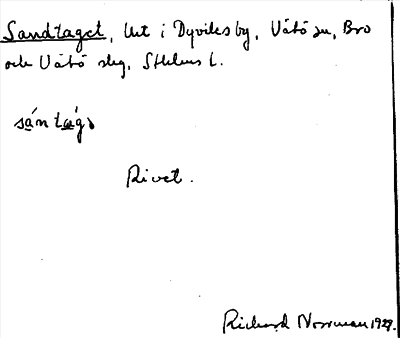 Sandtaget, Urt i Dyviks by, Vätö sn, Bro
och Vätö slg, Sthlms l.
sán tág
Rivet.
Richard Norrman 1929.